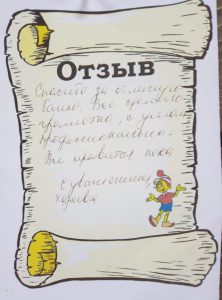 Отзыв
Спасибо за отличную
баню. Всё сделано
грамотно, с умом
профессионально.
Все нравится пока
С уважением,